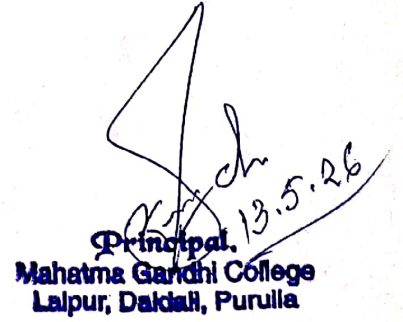 13.5.26
Principal.
Mahatma Gandhi College
Lalpur, Daldali, Purulia